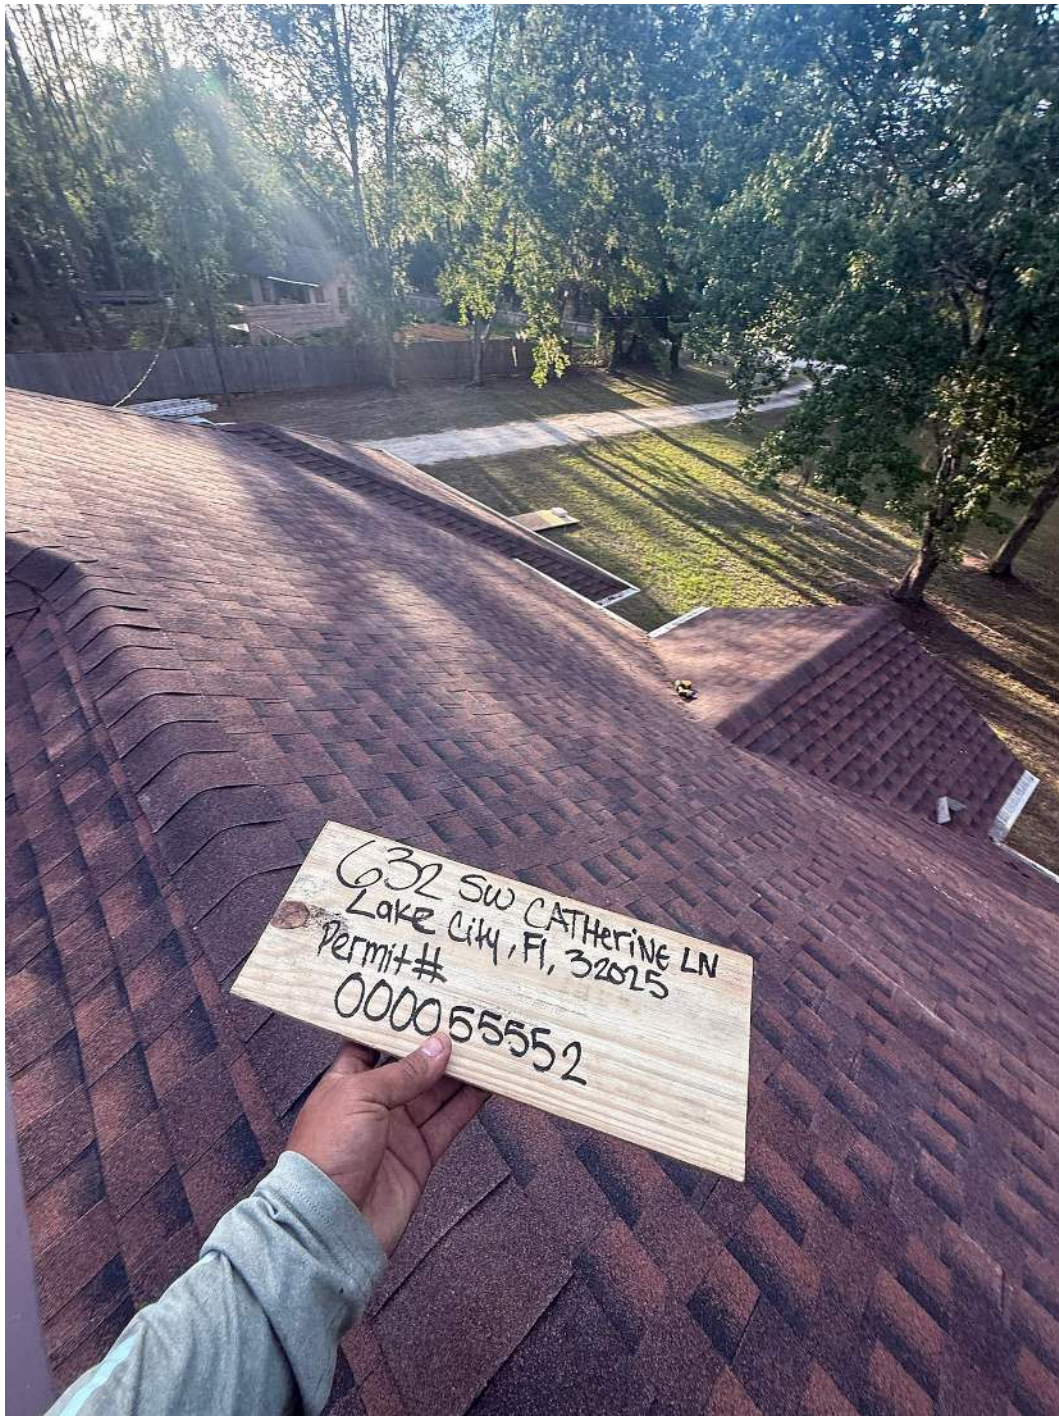 632 SW CATHERINE LN
Lake City, Fl, 32025
Permit#
000055552